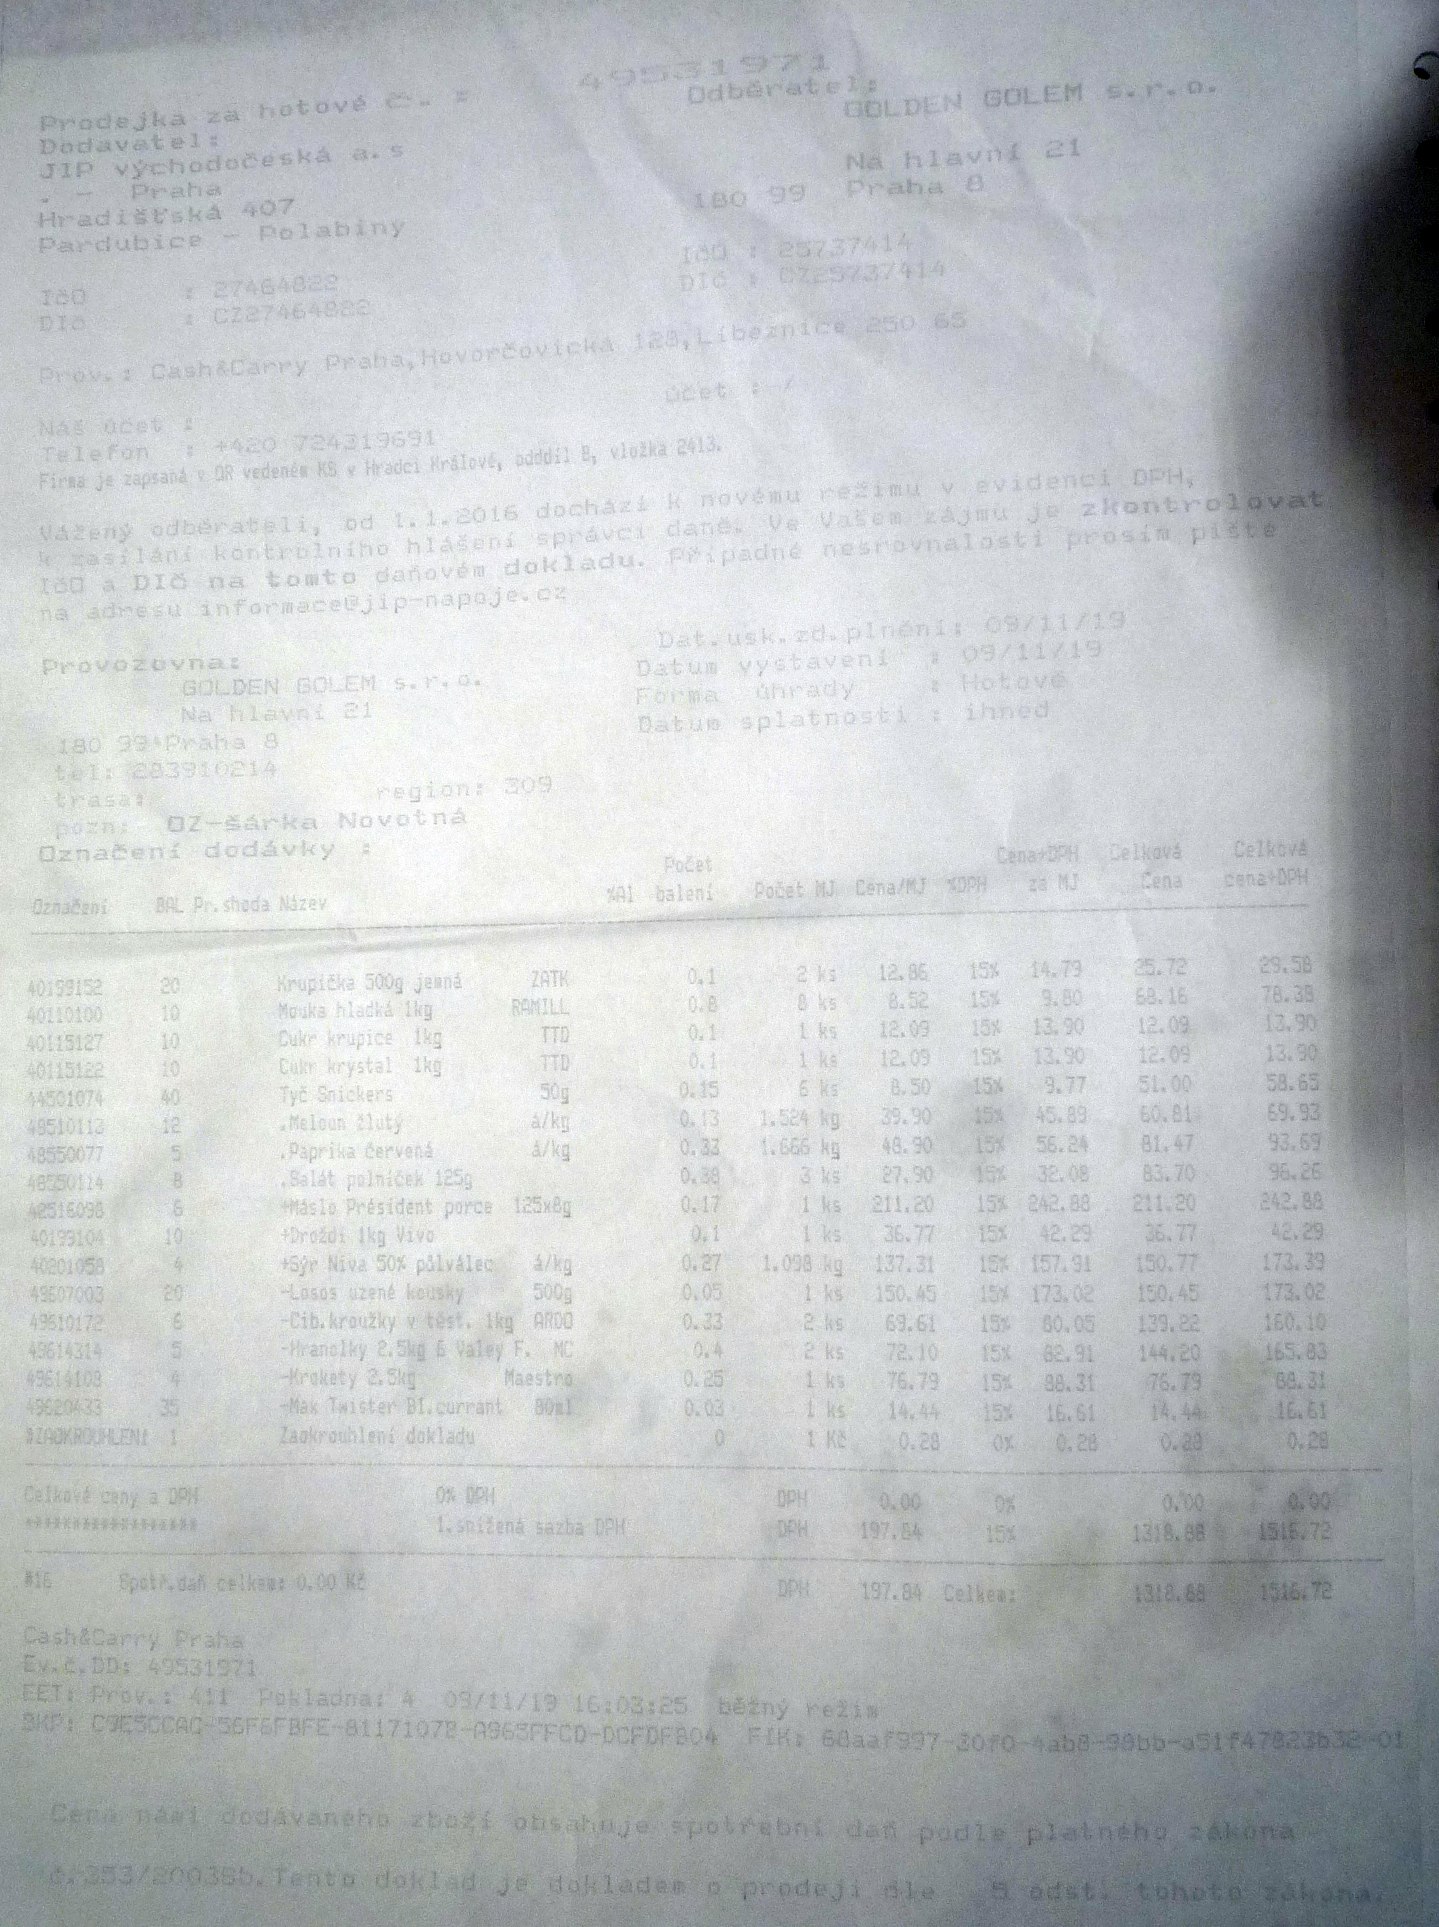 Prodejka za hotové č. : 49531971
Dodavatel: Odběratel:
JIP východočeská a.s GOLDEN GOLEM s.r.o.
. - Praha
Hradišťská 407 Na hlavní 21
Pardubice - Polabiny 180 99 Praha 8
IČO : 27464822 IČO : 25737414
DIČ : CZ27464822 DIČ : CZ25737414
Prov.: Cash&Carry Praha,Hovorčovická 128,Líbeznice 250 65
Náš účet : účet : /
Telefon : +420 724319691
Firma je zapsaná v OR vedeném KS v Hradci Králové, odddíl B, vložka 2413.
Vážený odběrateli, od 1.1.2016 dochází k novému režimu v evidenci DPH,
k zasílání kontrolního hlášení správci daně. Ve Vašem zájmu je zkontrolovat
IČO a DIČ na tomto daňovém dokladu. Případné nesrovnalosti prosím pište
na adresu informace@jip-napoje.cz
Provozovna: Dat.usk.zd.plnění: 09/11/19
GOLDEN GOLEM s.r.o. Datum vystavení : 09/11/19
Na hlavní 21 Forma úhrady : Hotově
180 99 Praha 8 Datum splatnosti : ihned
tel: 283910214
trasa: region: 309
pozn: OZ-šárka Novotná
Označení dodávky :
Počet Cena+DPH Celková Celková
Označení BAL Pr.shoda Název %Al balení Počet MJ Cena/MJ %DPH za MJ Cena cena+DPH
40159152 20 Krupička 500g jemná ZATK 0.1 2 ks 12.86 15% 14.79 25.72 29.58
40110100 10 Mouka hladká 1kg RAMILL 0.8 8 ks 8.52 15% 9.80 68.16 78.38
40115127 10 Cukr krupice 1kg TTD 0.1 1 ks 12.09 15% 13.90 12.09 13.90
40115122 10 Cukr krystal 1kg TTD 0.1 1 ks 12.09 15% 13.90 12.09 13.90
44501074 40 Tyč Snickers 50g 0.15 6 ks 8.50 15% 9.77 51.00 58.65
48510113 12 .Meloun žlutý á/kg 0.13 1.524 kg 39.90 15% 45.89 60.81 69.93
48550077 5 .Paprika červená á/kg 0.33 1.666 kg 48.90 15% 56.24 81.47 93.69
48550114 8 .Salát polníček 125g 0.38 3 ks 27.90 15% 32.08 83.70 96.26
42516098 6 +Máslo Président porce 125x8g 0.17 1 ks 211.20 15% 242.88 211.20 242.88
40199104 10 +Droždí 1kg Vivo 0.1 1 ks 36.77 15% 42.29 36.77 42.29
40201058 4 +Sýr Niva 50% půlválec á/kg 0.27 1.098 kg 137.31 15% 157.91 150.77 173.39
49607003 20 -Losos uzené kousky 500g 0.05 1 ks 150.45 15% 173.02 150.45 173.02
49610172 6 -Cib.kroužky v těst. 1kg ARDO 0.33 2 ks 69.61 15% 80.05 139.22 160.10
49614314 5 -Hranolky 2.5kg 6 Valey F. MC 0.4 2 ks 72.10 15% 82.91 144.20 165.83
49614103 4 -Krokety 2.5kg Maestro 0.25 1 ks 76.79 15% 88.31 76.79 88.31
49620433 35 -Max Twister Bl.currant 80ml 0.03 1 ks 14.44 15% 16.61 14.44 16.61
#ZAOKROUHLENI 1 Zaokrouhlení dokladu 0 1 Kč 0.28 0% 0.28 0.28 0.28
Celkové ceny a DPH 0% DPH DPH 0.00 0% 0.00 0.00
****************** 1.snížená sazba DPH DPH 197.84 15% 1318.88 1516.72
#16 Spotř.daň celkem: 0.00 Kč DPH 197.84 Celkem: 1318.88 1516.72
Cash&Carry Praha
Ev.č.DD: 49531971
EET: Prov.: 411 Pokladna: 4 09/11/19 16:03:25 běžný režim
BKP: FIK:
Cena námi dodávaného zboží obsahuje spotřební daň podle platného zákona
č.353/2003Sb.Tento doklad je dokladem o prodeji dle 5 odst. tohoto zákona.